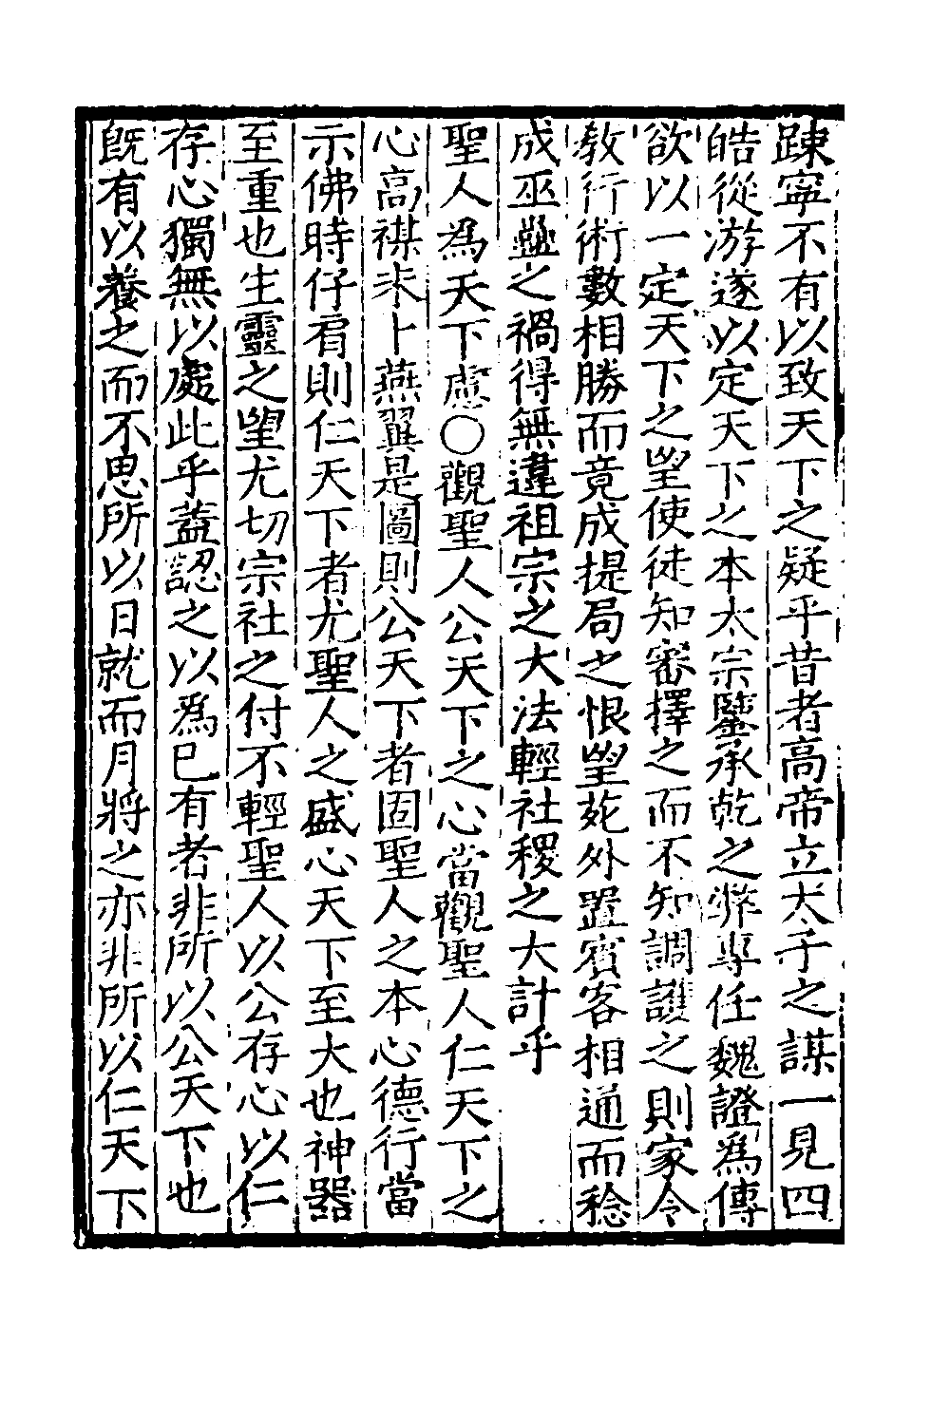 踈寜不有以致天下之疑乎昔者高帝立太子之謀一見四
皓從游遂以定天下之本太宗鑒承乾之弊專任魏證為傳
欲以一定天下之望使徒知審擇之而不知調護之則家令
教行術數相勝而竟成提局之恨望苑外置賓客相通而稔
成巫蠱之禍得無違祖宗之大法輕社稷之大計乎
聖人為天下慮○觀聖人公天下之心當觀聖人仁天下之
心高禖未卜燕翼是圖則公天下者固聖人之本心德行當
示佛時仔肩則仁天下者尤聖人之盛心天下至大也神器
至重也生靈之望尤切宗社之付不輕聖人以公存心以仁
存心獨無以處此乎蓋認之以為巳有者非所以公天下也
旣有以養之而不思所以日就而月將之亦非所以仁天下